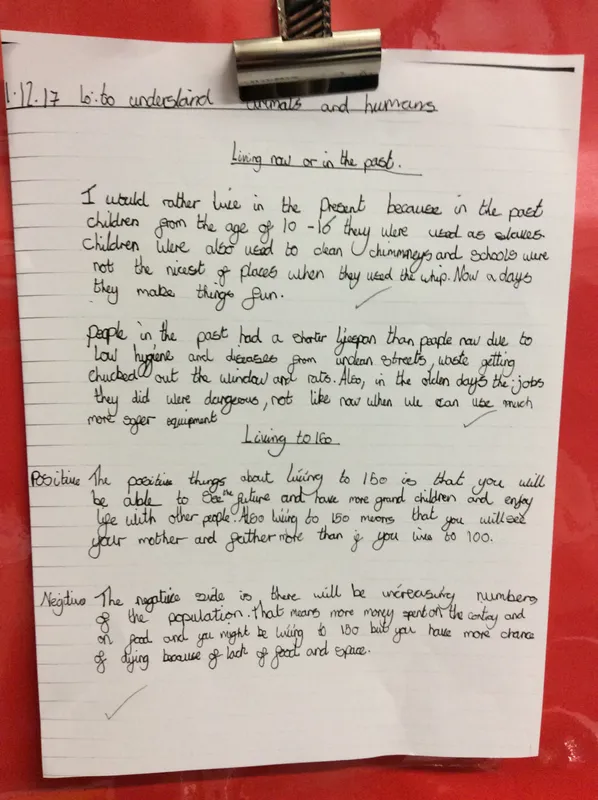 1.12.17 Lo: to understand animals and humans
Living now or in the past.
I would rather live in the Present because in the past
children from the age of 10 - 16 they were used as slaves.
Children were also used to clean chimmneys and schools were
not the nicest of places when they used the whip. Now a days
they make things fun.
People in the past had a shorter lifespan than people now due to
low hygiene and diseases from unclean streets, waste getting
chucked out the window and rats. Also, in the olden days the jobs
they did were dangerous, not like now when we can use much
more safer equipment
Living to 160
Positive The positive things about living to 150 is that you will
be able to see the future and have more grand children and enjoy
life with other people. Also living to 150 means that you will see
your mother and father more than if you live to 100.
Negitive The negative side is there will be increasing numbers
of the population. That means more money spent on the contry and
on food and you might be living to 150 but you have more chance
of dying because of lack of food and space.